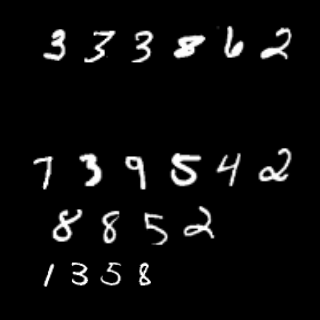 333862
739542
8852
1358